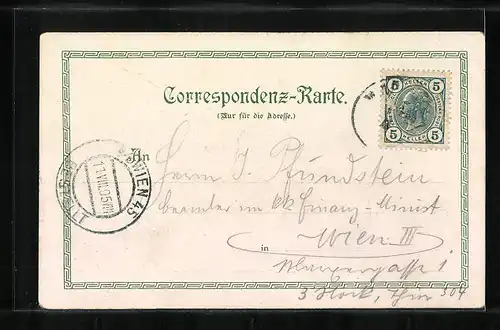 Correspondenz-Karte.
(Nur für die Adresse.)
5 5
5 5
HELLER
An Herrn J. Pfundstein
beamter im k k Finanz-Minist
in Wien III
1
3 Stock, Thür 304
WIEN 45